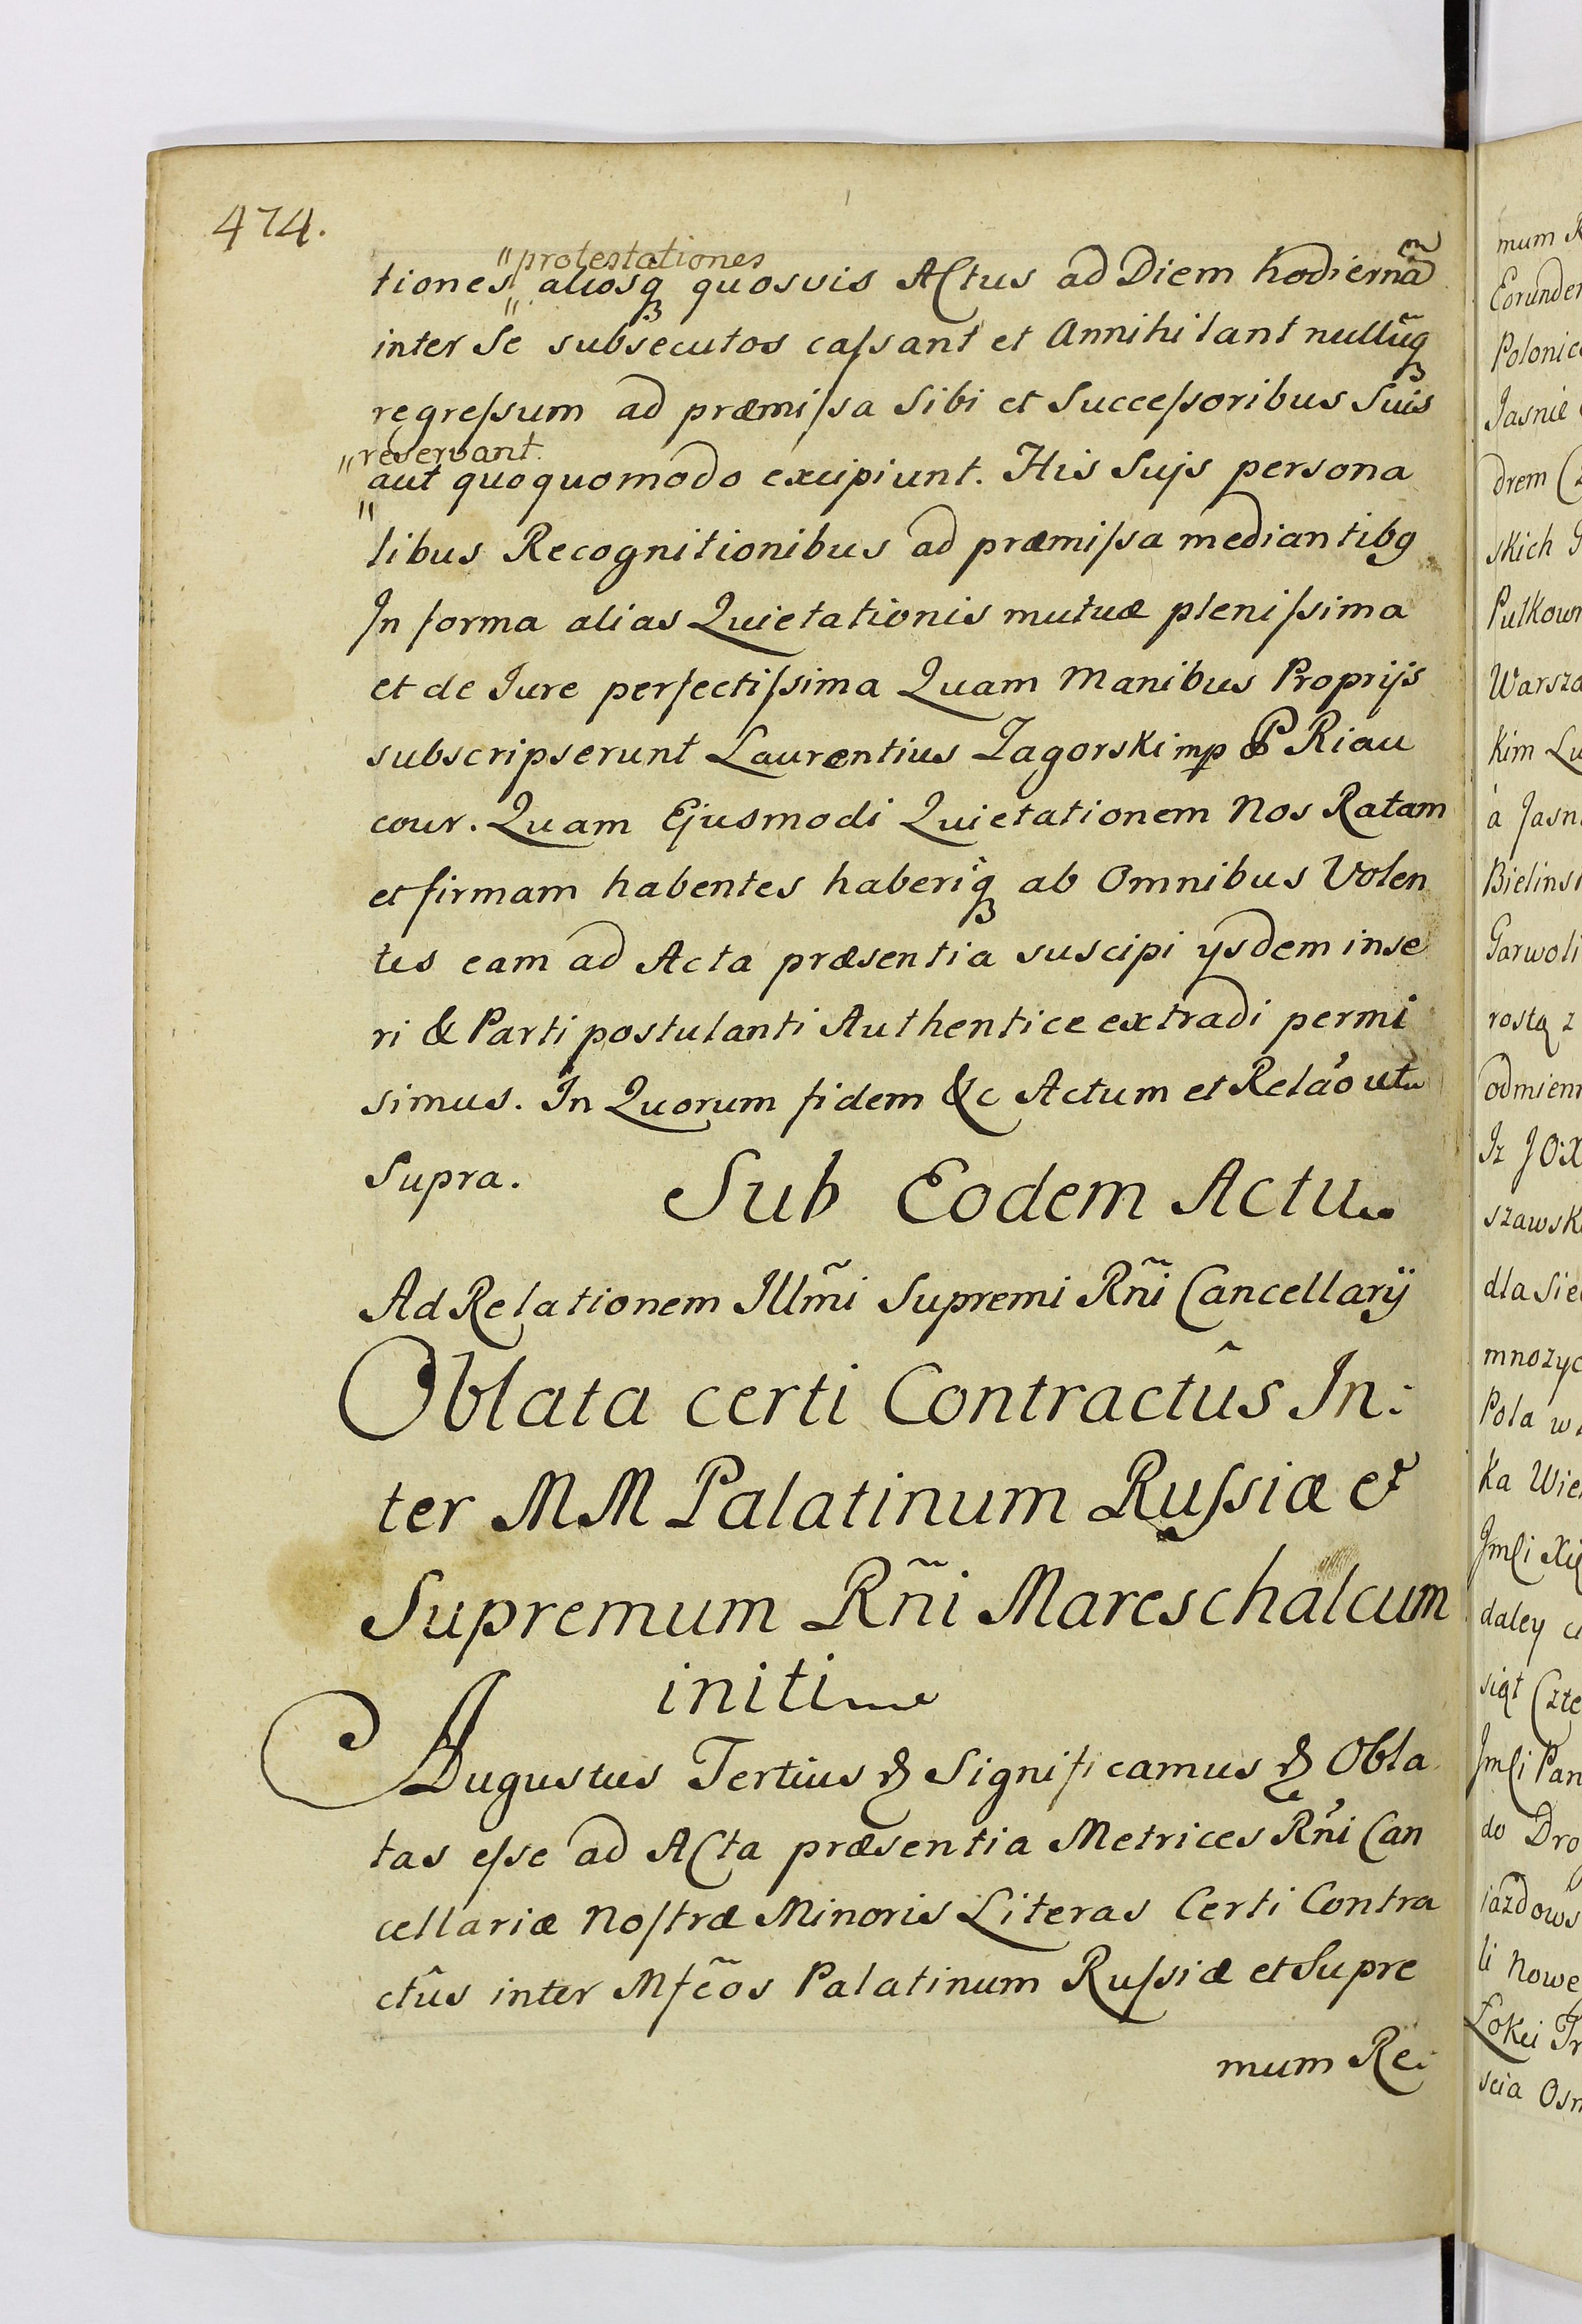 474.
"protestationes
tiones" aliosq₃ quosvis Actus ad Diem hodiernã
inter Se subsecutos caſsant et Annihilant nullũq₃
regreſsum ad præmiſsa Sibi et Succeſsoribus Suis
"reservant.
aut quoquomodo excipiunt. His Sujs persona
libus Recognitionibus ad præmiſsa mediantibq
In forma alias Quietationis mutuæ pleniſsima
et de Jure perfectiſsima Quam Manibus Proprijs
subscripserunt Laurentius Zagorski mp P Riau
cour. Quam Ejusmodi Quietationem Nos Ratam
et firmam habentes haberiq₃ ab Omnibus Volen
tes eam ad Acta præsentia suscipi ysdem inse
ri & Parti postulanti Authentice extradi permi
simus. In Quorum fidem &c Actum et Relao ut
Supra.
Sub Eodem Actu
Ad Relationem Illm̃i Supremi Rñi Cancellarÿ
Oblata certi Contractûs In:
ter MM Palatinum Ruſsiæ et
Supremum Rñi Mareschalcum
initi
Augustus Tertius & Significamus & Obla
tas eſse ad Acta præsentia Metrices Rñi Can
cellariæ Noſtræ Minoris Literas Certi Contra
ctûs inter Mfc̃os Palatinum Ruſsiæ et Supre
mum Re:
mum R
Eorunde
Polonic
Jasnie
drem
skich G
Pułkow
Warsza
kim Lu
à Jasn
Bielins
Garwoli
rostą z
odmien
Iz JO:X
szawsk
dla Sie
mnozyc
Pola w
ka Wie
Jmſi Xię
daley
siąt Czte
Jmſi Pan
do Dro
iazdows
li Nowe
Łokci Tr
scia Osm